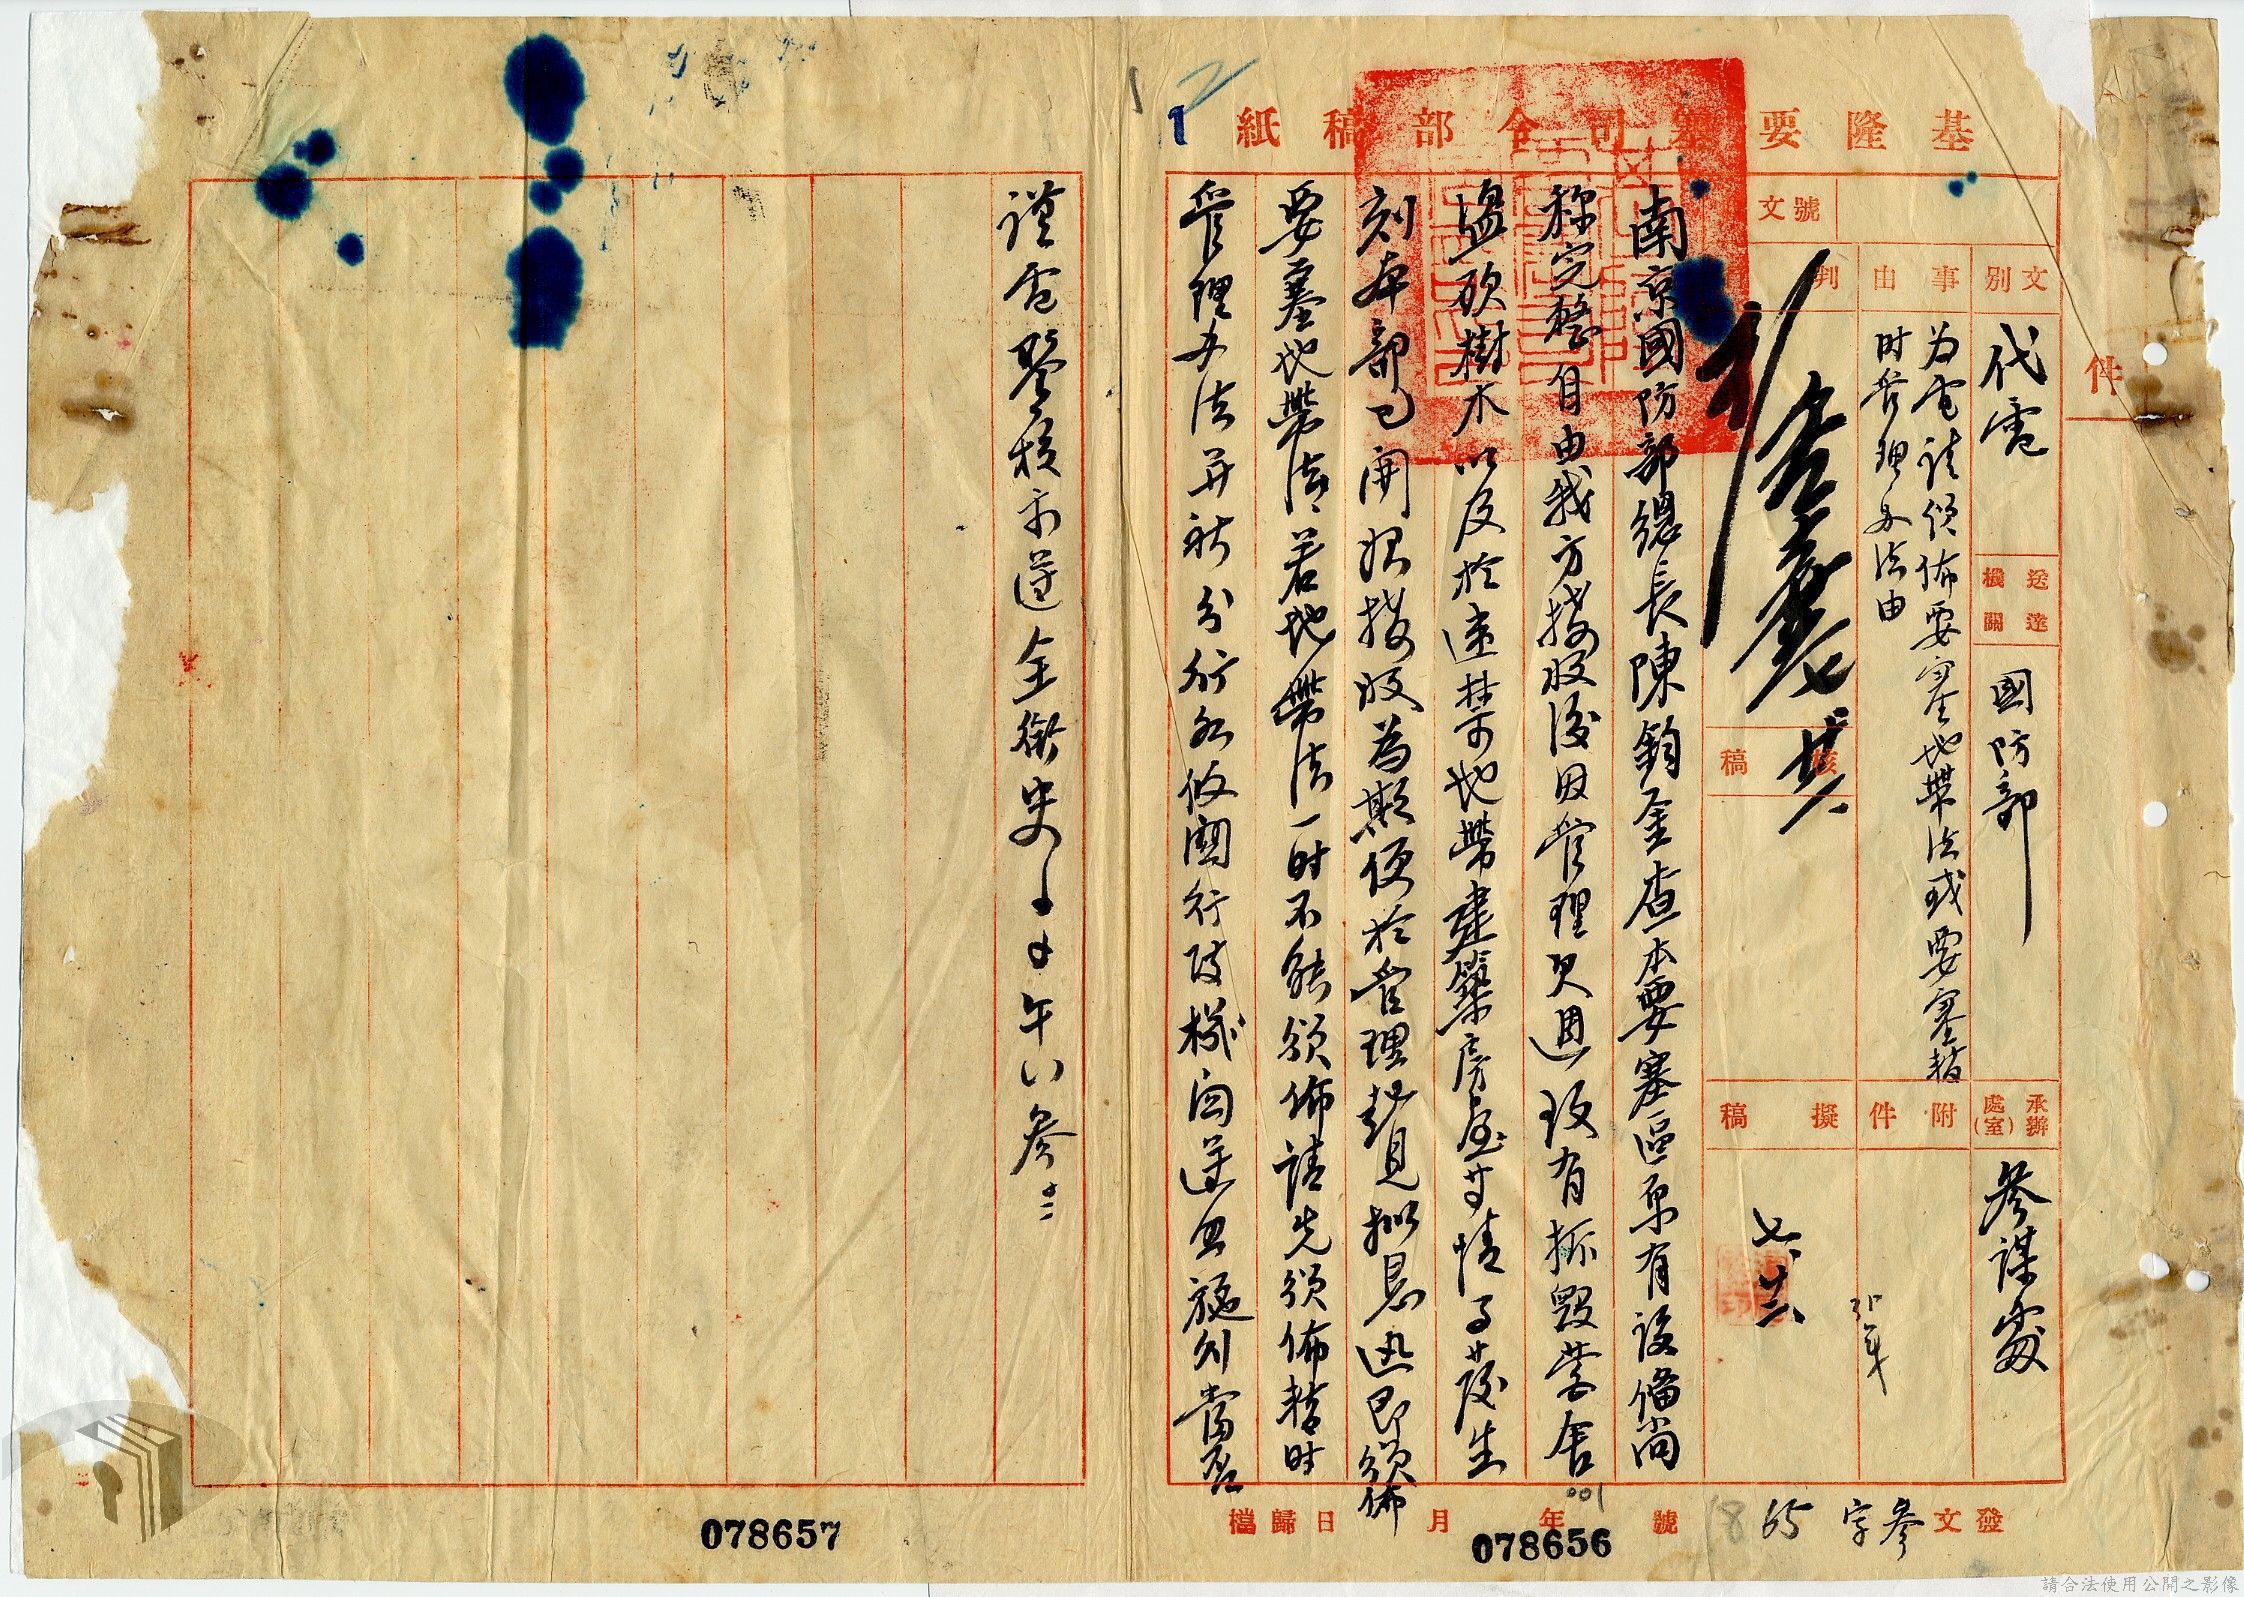 基隆要塞司令部稿紙
件
文別
代電
送達機關
國防部
承辦處(室)
參謀處
事由
为電請頒佈要塞地帶法或要塞暫
时管理办法由
附件
文號
判
核稿
擬稿
七、廿六
南京國防部總長陳鈞鑒查本要塞區原有設備尚
称完整自由我方接收後因管理欠週致有拆毀營舍
盜砍樹木以及於違禁地帶建築房屋等情事發生
刻本部已開始接收為期便於管理起見擬懇迅即頒佈
要塞地帶法若地帶法一时不能頒佈請先頒佈暫时
管理办法并祈分行各攸關行政機関遵照施行當否
謹電鑒核示遵全銜史〇〇午 參
發文 參字 65 號 年 月 日歸檔
1
001
078656
078657
請合法使用公開之影像